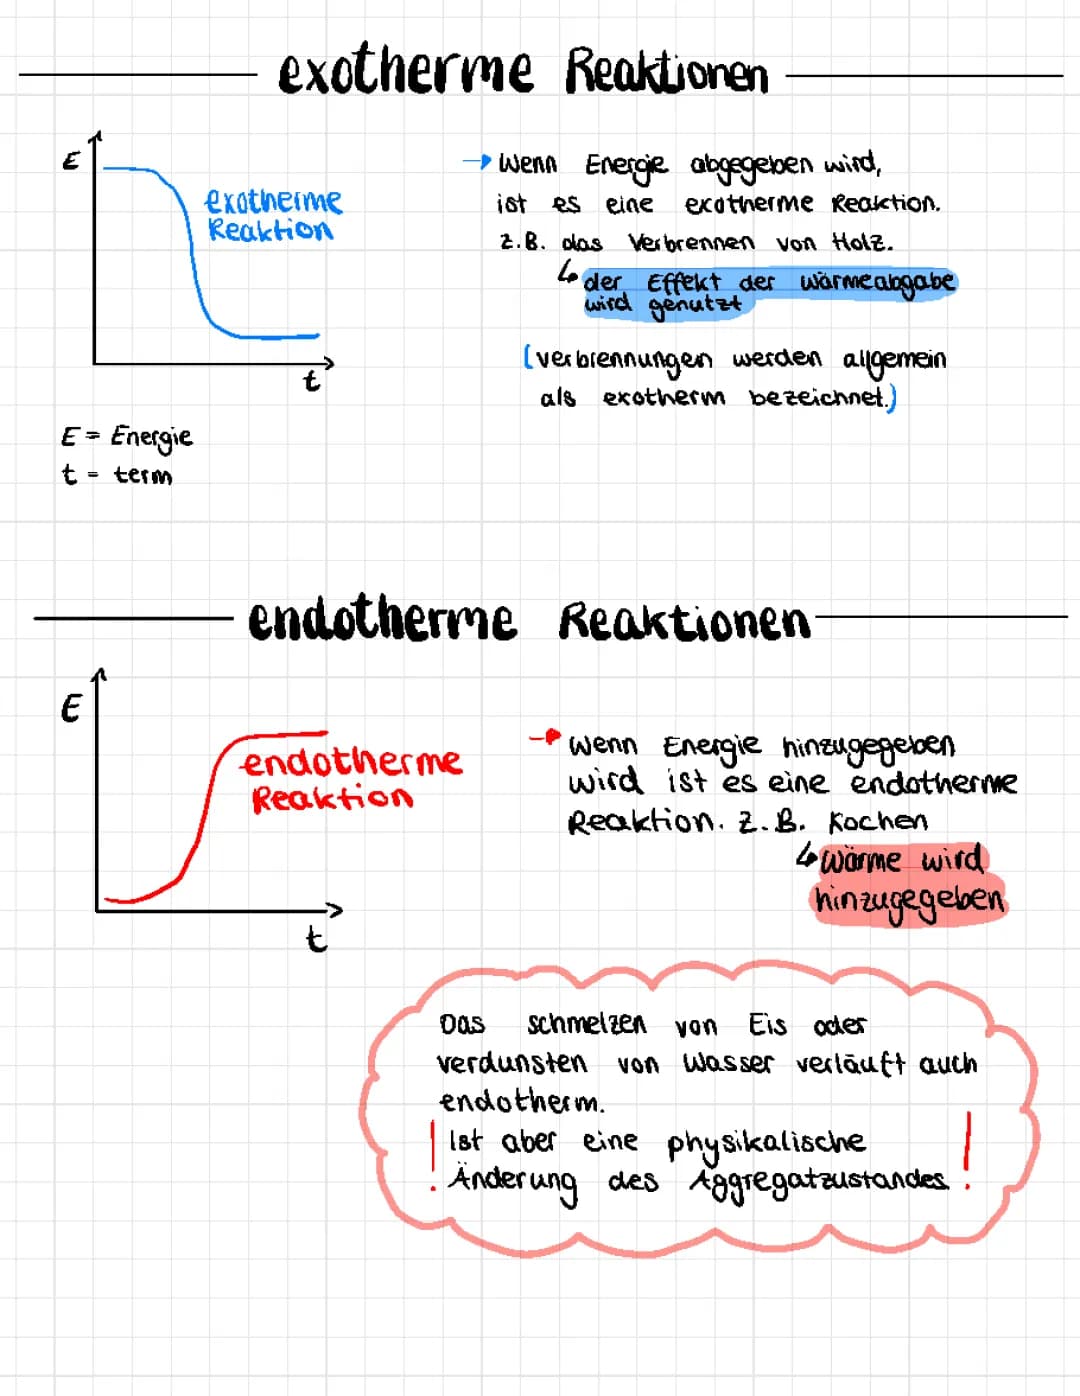 exotherme Reaktionen
E
exotherme
Reaktion
t
E = Energie
t = term
→ Wenn Energie abgegeben wird,
ist es eine exotherme Reaktion.
z.B. das Verbrennen von Holz.
↳ der Effekt der wärmeabgabe
wird genutzt
(verbrennungen werden allgemein
als exotherm bezeichnet.)
endotherme Reaktionen
E
endotherme
Reaktion
t
→ Wenn Energie hinzugegeben
wird ist es eine endotherme
Reaktion. z.B. Kochen
↳ wärme wird
hinzugegeben
Das schmelzen von Eis oder
verdunsten von Wasser verläuft auch
endotherm.
! Ist aber eine physikalische
Änderung des Aggregatzustandes !